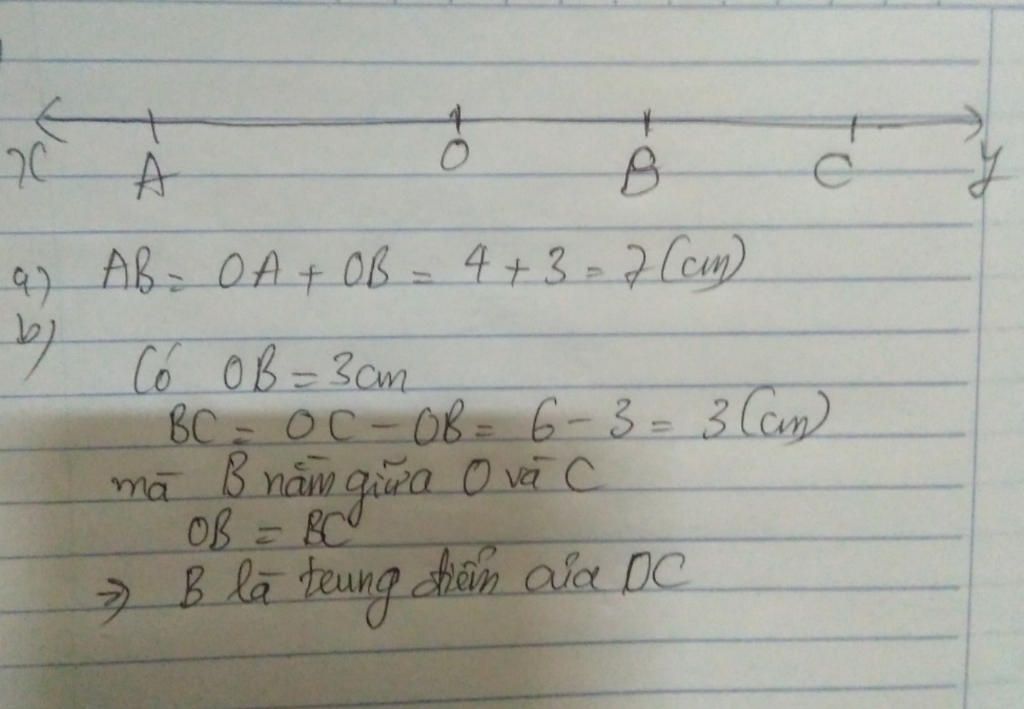 x A O B C y
a) AB = OA + OB = 4 + 3 = 7 (cm)
b)
Có OB = 3cm
BC = OC - OB = 6 - 3 = 3 (cm)
mà B nằm giữa O và C
OB = BC
=> B là trung điểm của OC